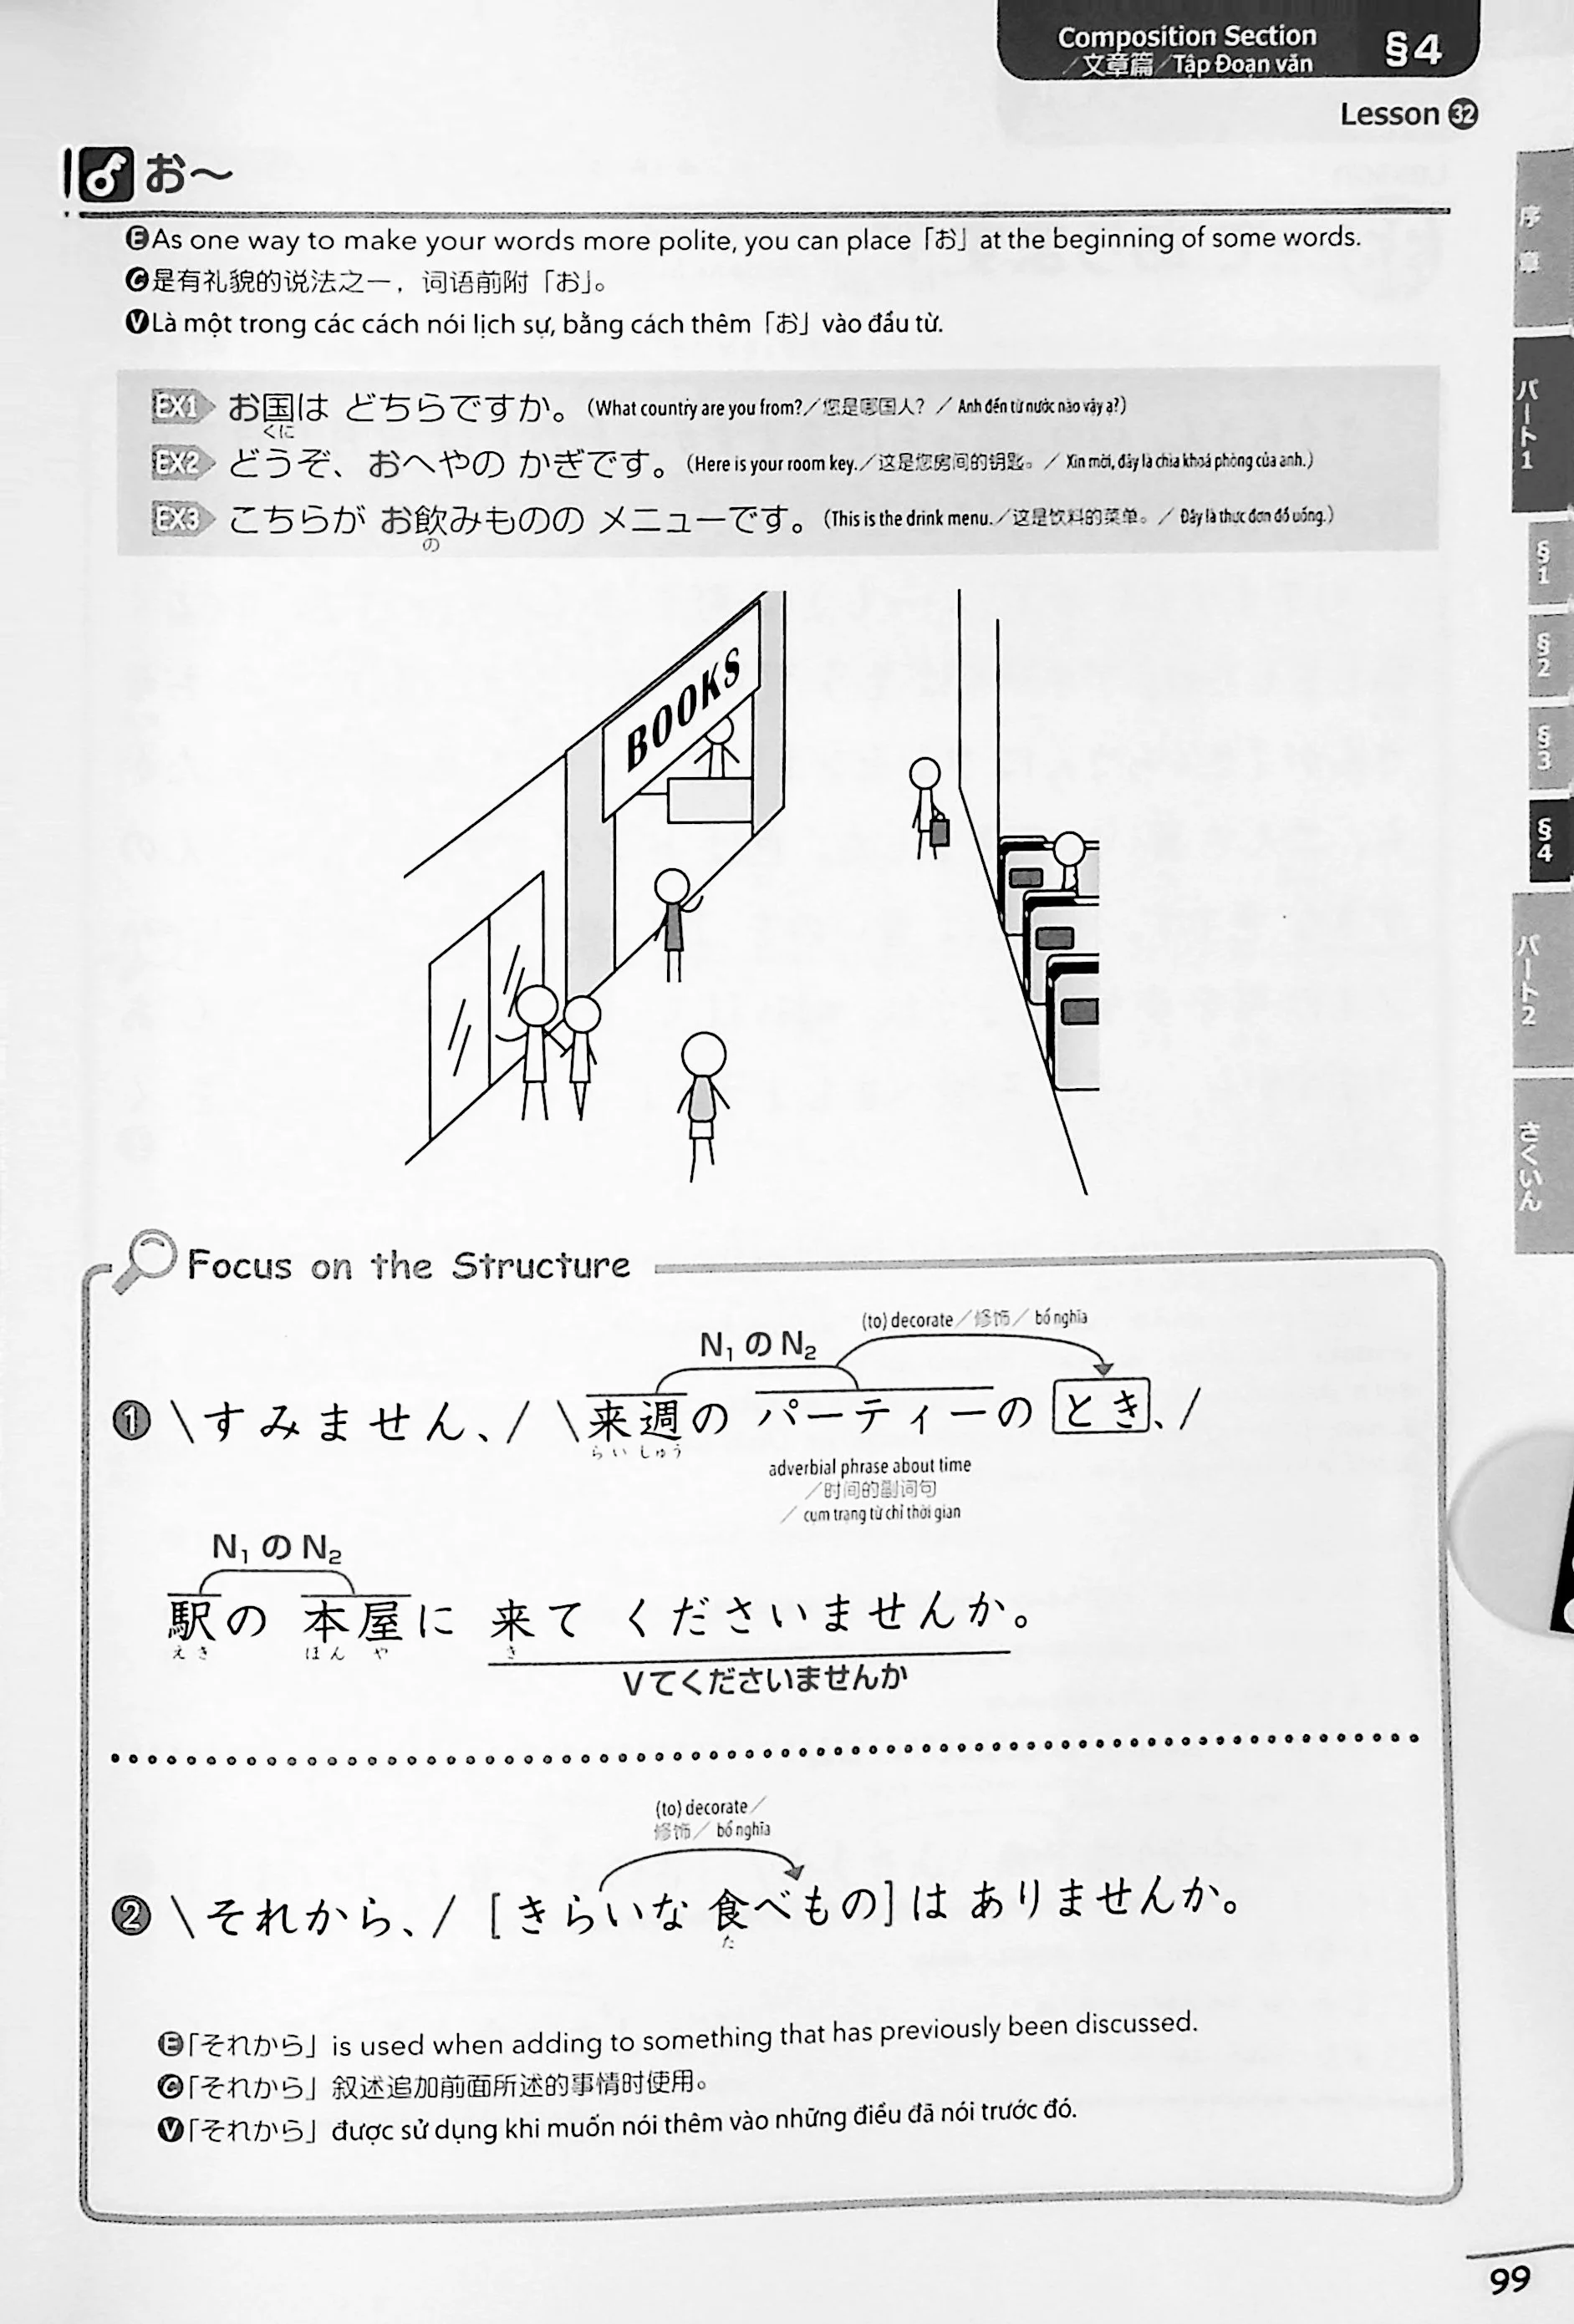 Composition Section
／文章篇／Tập Đoạn văn
§4
Lesson 32
お～
ⒺAs one way to make your words more polite, you can place「お」at the beginning of some words.
Ⓒ是有礼貌的说法之一，词语前附「お」。
ⓋLà một trong các cách nói lịch sự, bằng cách thêm「お」vào đầu từ.
EX1 お国は どちらですか。(What country are you from?／您是哪国人？／ Anh đến từ nước nào vậy ạ?)
くに
EX2 どうぞ、おへやの かぎです。(Here is your room key.／这是您房间的钥匙。／ Xin mời, đây là chìa khoá phòng của anh.)
EX3 こちらが お飲みものの メニューです。(This is the drink menu.／这是饮料的菜单。／ Đây là thực đơn đồ uống.)
の
BOOKS
Focus on the Structure
(to) decorate／修饰／ bổ nghĩa
N₁ の N₂
❶ \すみません、/ \来週の パーティーの とき、/
らいしゅう
adverbial phrase about time
／时间的副词句
／ cụm trạng từ chỉ thời gian
N₁ の N₂
駅の 本屋に 来て くださいませんか。
えき ほんや き
Vてくださいませんか
(to) decorate／
修饰／ bổ nghĩa
❷ \それから、/ [きらいな 食べもの]は ありませんか。
た
Ⓔ「それから」is used when adding to something that has previously been discussed.
Ⓒ「それから」叙述追加前面所述的事情时使用。
Ⓥ「それから」được sử dụng khi muốn nói thêm vào những điều đã nói trước đó.
99
序章
パート1
§1
§2
§3
§4
パート2
さくいん